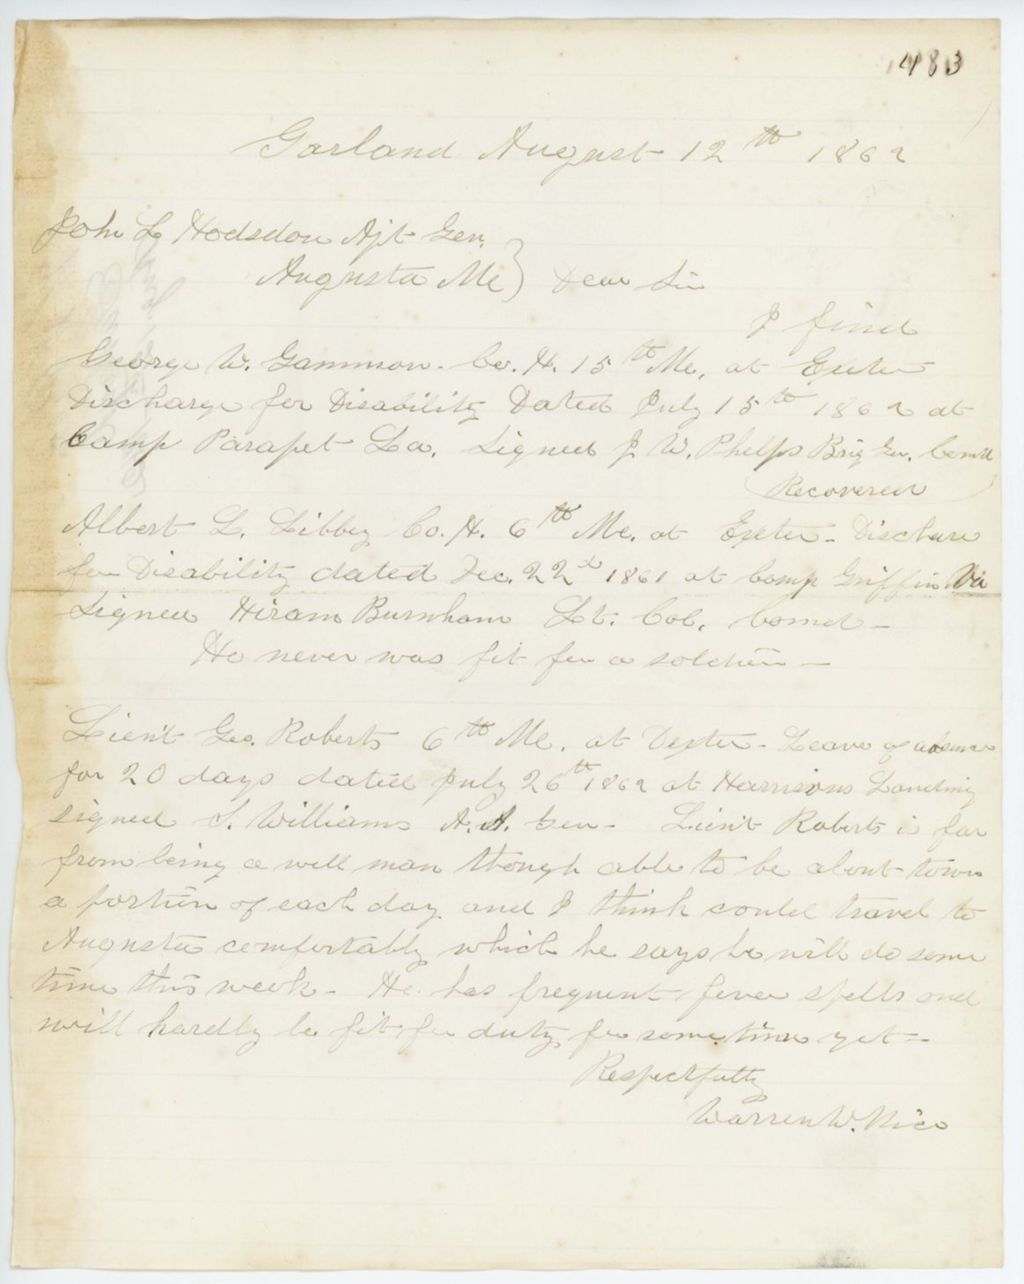 1483
Garland August 12th 1862
John L Hodsdon Ajt Gen.
Augusta Me) Dear Sir
I find
George W. Gammon. Co. H. 15th Me, at Exeter
Discharge for Disability Dated July 15th 1862 at
Camp Parapet La. Signed J W. Phelps Brig Gen. Comd
(Recovered)
Albert L. Libbey Co. H. 6th Me. at Exeter - Discharge
for Disability dated Dec. 22d 1861 at Camp Griffin Va
Signed Hiram Burnham Lt. Col. Comd -
He never was fit for a soldier -
Lieut Geo. Roberts 6th Me. at Dexter - Leave of absence
for 20 days dated July 26th 1862 at Harrisons Landing
signed S. Williams A. A. Gen - Lieut Roberts is far
from being a well man though able to be about town
a portion of each day and I think could travel to
Augusta comfortably which he says he will do some
time this week - He has frequent fever spells and
will hardly be fit for duty for some time yet -
Respectfully
Warren W. Rice